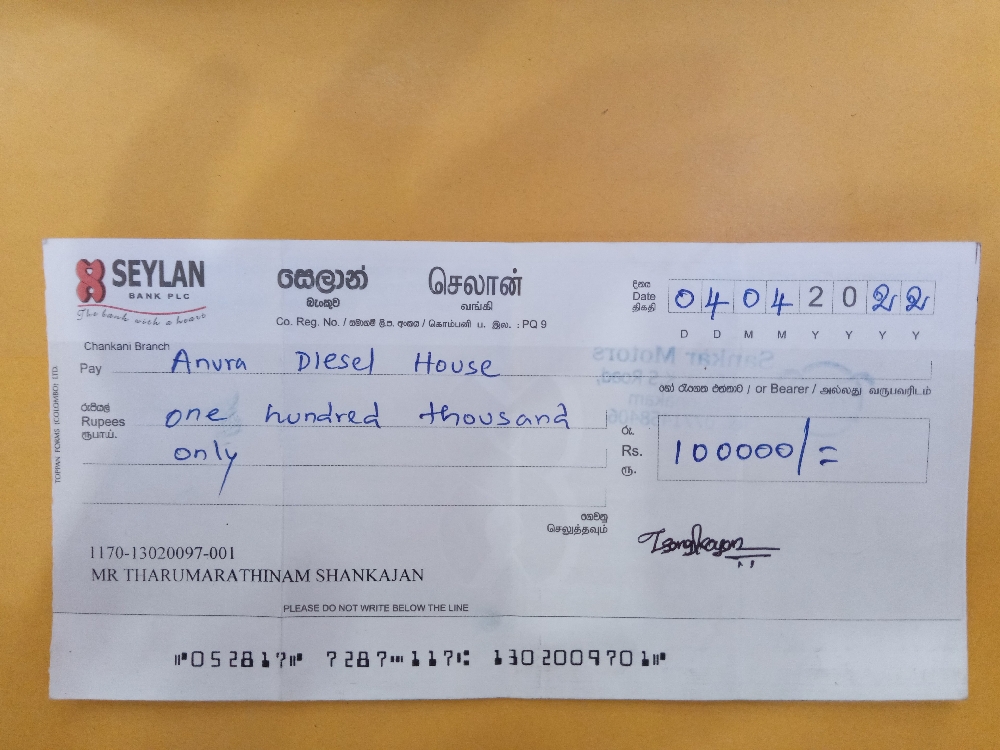 SEYLAN
BANK PLC
The bank with a heart
සෙලාන්
බැංකුව
செலான்
வங்கி
Co. Reg. No. / සමාගම් ලි.ප. අංකය / கொம்பனி ப. இல. : PQ 9
දිනය
Date
திகதி
04042022
D D M M Y Y Y Y
Chankani Branch
Pay Anura Diesel House
හෝ රැගෙන එන්නාට / or Bearer / அல்லது வருபவரிடம்
Sankar Motors
රුපියල්
Rupees
ரூபாய்.
one hundred thousand
only
රු.
Rs.
ரூ.
100000/=
ගෙවනු
செலுத்தவும்
1170-13020097-001
MR THARUMARATHINAM SHANKAJAN
PLEASE DO NOT WRITE BELOW THE LINE
⑈052817⑈ 7287⑉117⑆ 130200970 1⑈
TOPPAN FORMS (COLOMBO) LTD.